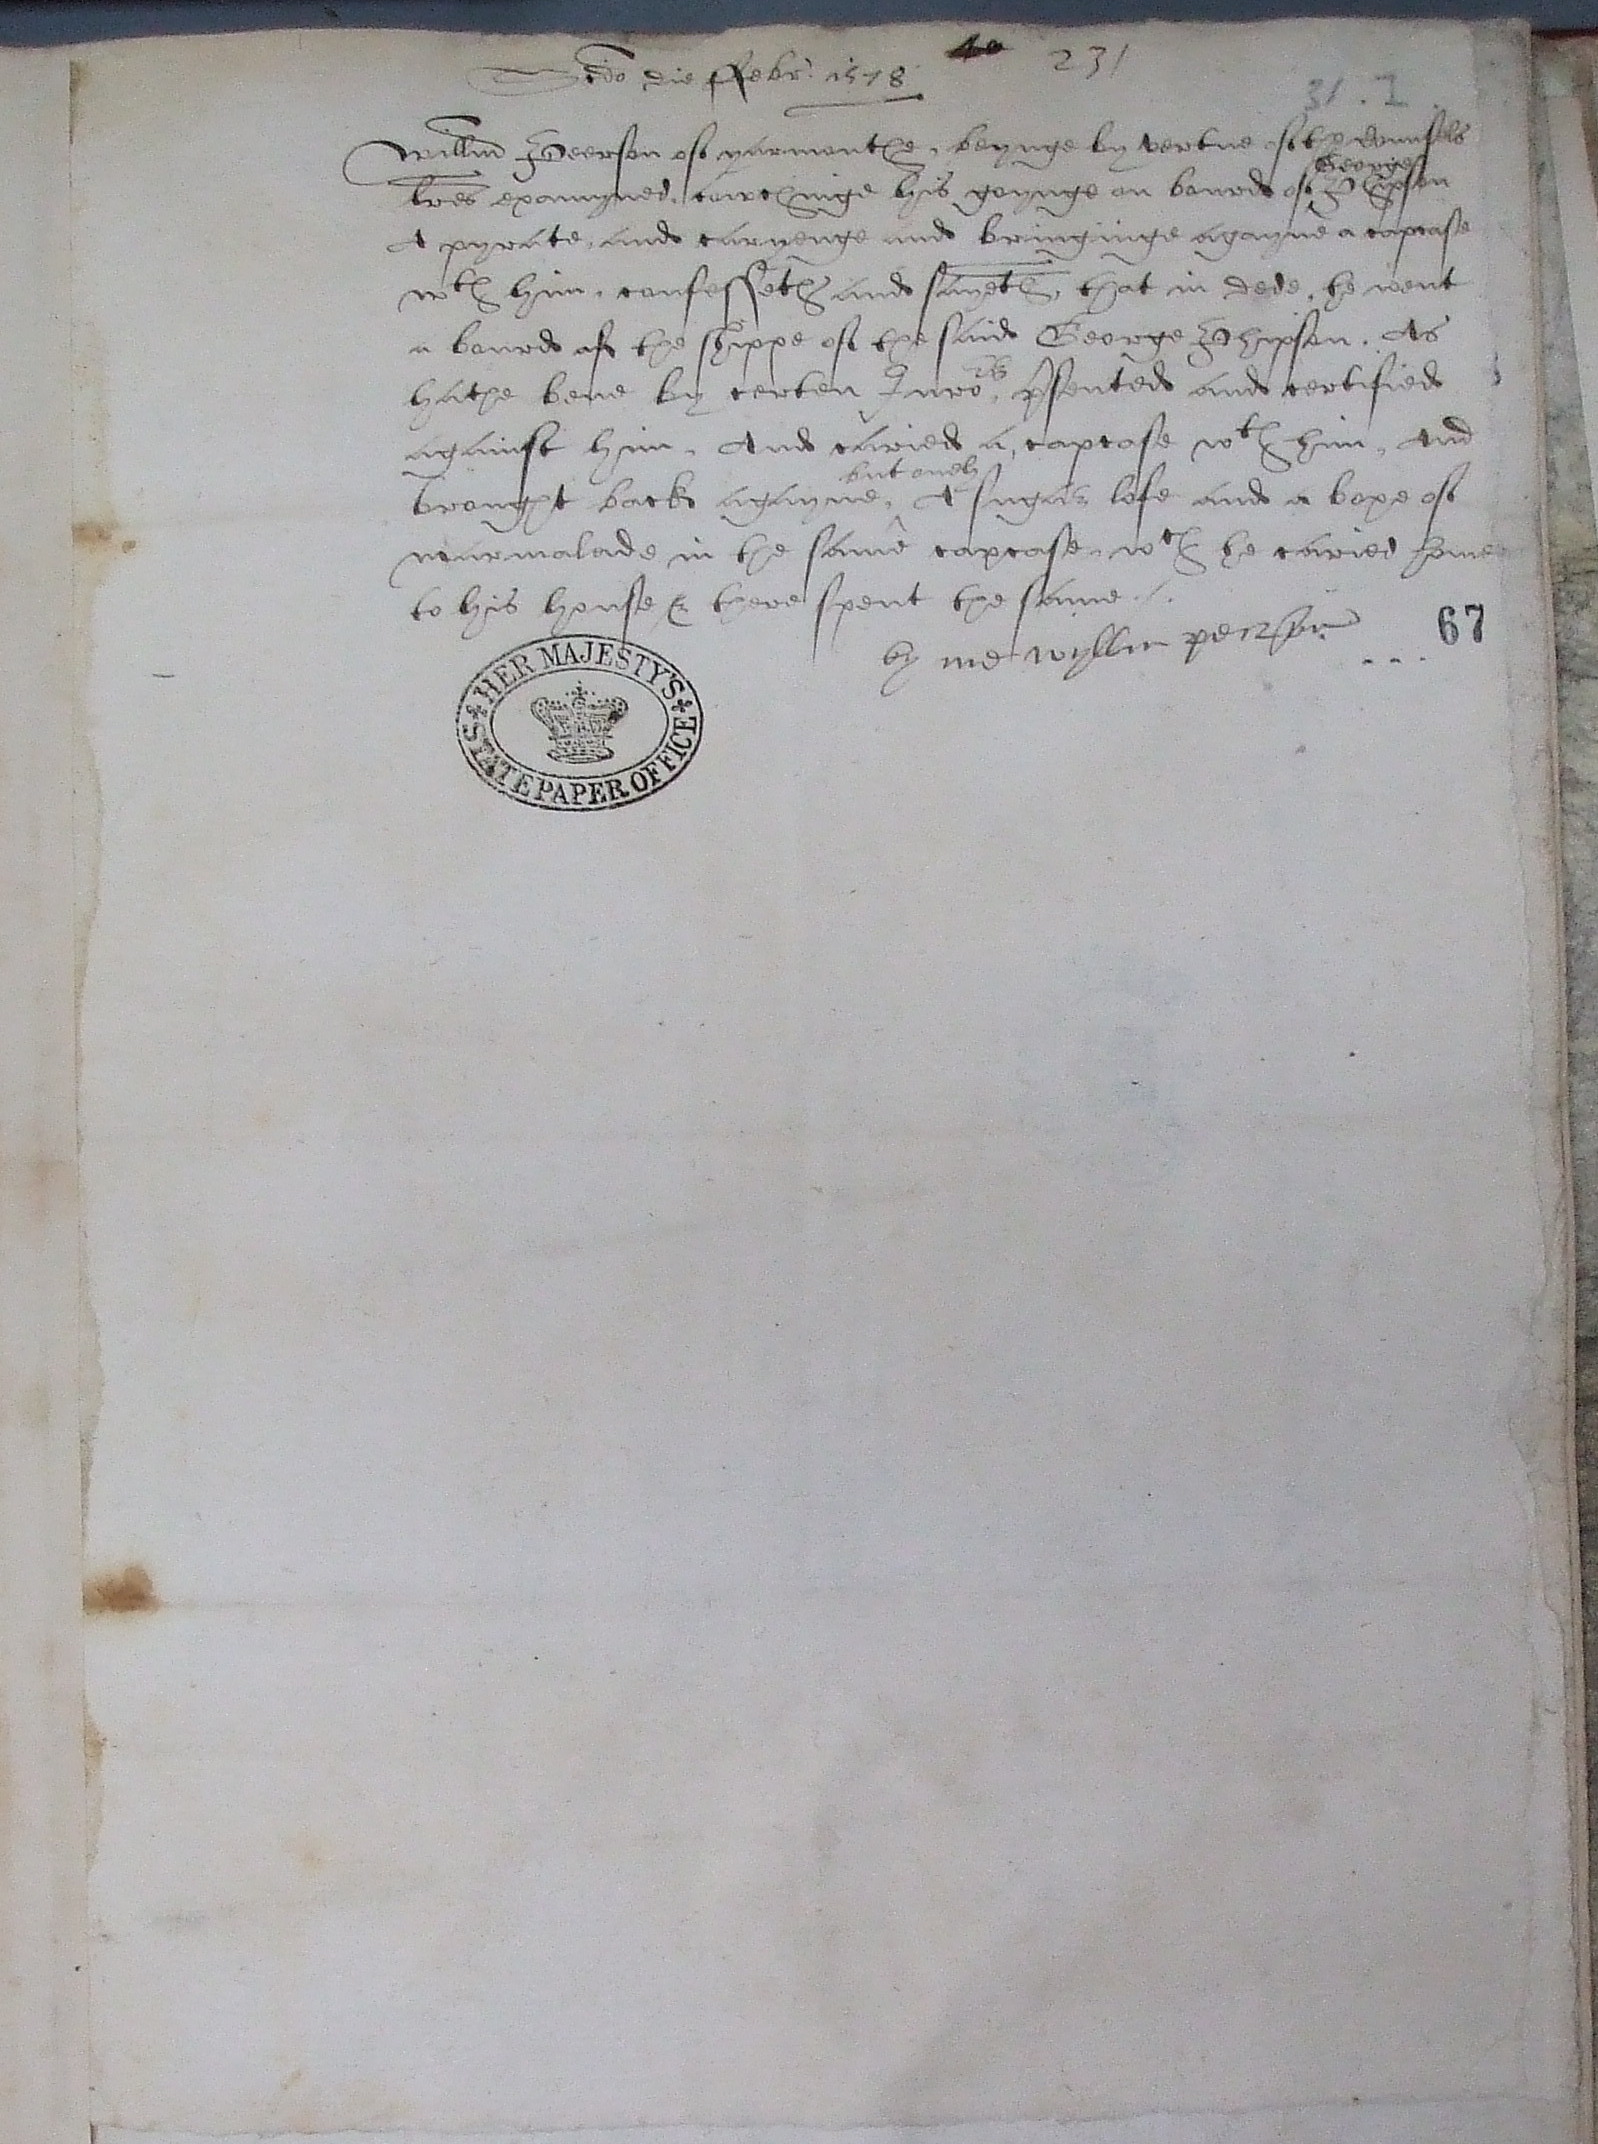 40 231
Scdo die ffebr 1578
31. I
Willm Peerson of yarmouthe, beynge by vertue of the counsels
George
lres examyned, towchinge his goynge on bourde of Phipson
A pyrate, and caryenge and bringinge agayne a capcase
wth him, confesseth and sayeth, that in dede, he went
a bourde of the shippe of the said George Phipson. As
hathe bene by certen Juro rs, psented and certified
against him, And caried a capcase wth him, And
but onely
brought back agayne, A sugar lofe and a boxe of
marmalade in the same capcase, wch he caried home
to his house & there spent the same./.
by me wyllm peerson
67
HER MAJESTY'S
STATE PAPER OFFICE